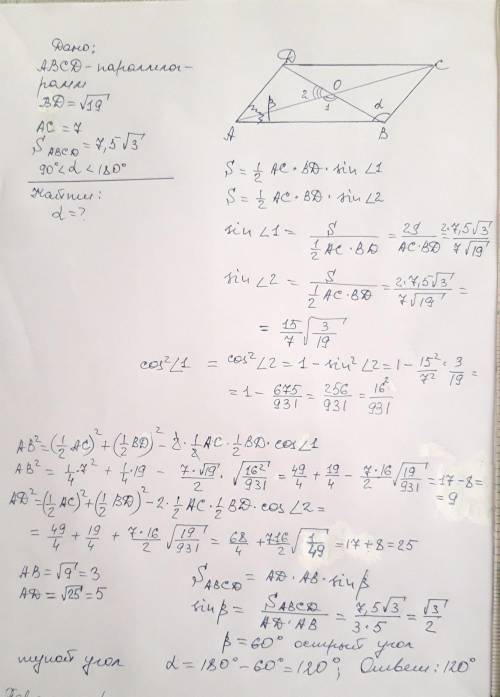 Дано:
ABCD - параллелог-
рамм
BD = √19
AC = 7
S ABCD = 7,5√3
90° < α < 180°
Найти:
α = ?
D
C
O
2
1
β
α
A
B
S = 1/2 AC · BD · sin ∠1
S = 1/2 AC · BD · sin ∠2
sin ∠1 = S / (1/2 AC · BD) = 2S / (AC · BD) = 2·7,5√3 / (7√19)
sin ∠2 = S / (1/2 AC · BD) = 2·7,5√3 / (7√19) =
= 15/7 √(3/19)
cos² ∠1 = cos² ∠2 = 1 − sin² ∠2 = 1 − 15²/7² · 3/19 =
= 1 − 675/931 = 256/931 = 16²/931
AB² = (1/2 AC)² + (1/2 BD)² − 2 · 1/2 AC · 1/2 BD · cos ∠1
AB² = 1/4 · 7² + 1/4 · 19 − 7·√19/2 · √(16²/931) = 49/4 + 19/4 − 7·16/2 √(19/931) = 17 − 8 =
= 9
AD² = (1/2 AC)² + (1/2 BD)² − 2 · 1/2 AC · 1/2 BD · cos ∠2 =
= 49/4 + 19/4 + 7·16/2 √(19/931) = 68/4 + 716/2 √(1/49) = 17 + 8 = 25
AB = √9 = 3
AD = √25 = 5
S ABCD = AD · AB · sin β
sin β = S ABCD / (AD · AB) = 7,5√3 / (3·5) = √3/2
β = 60° острый угол
тупой угол α = 180° − 60° = 120°; Ответ: 120°